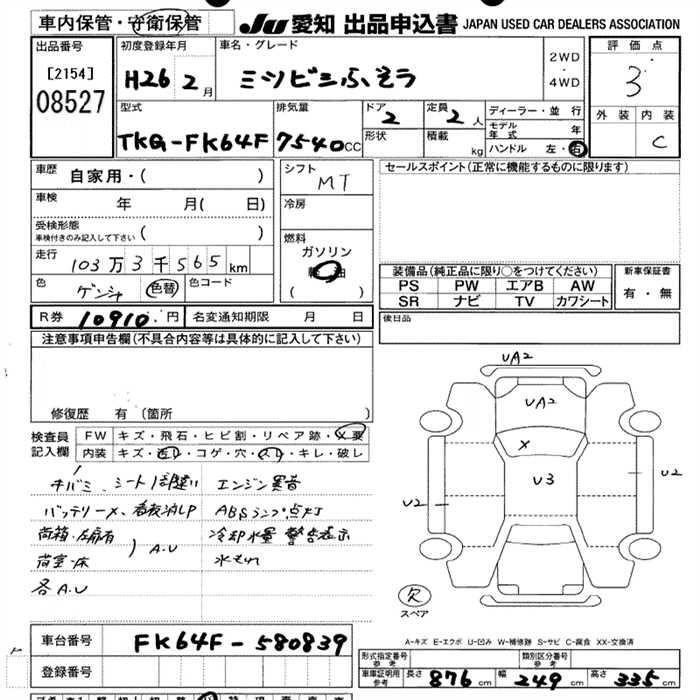 車内保管・守衛保管
JU 愛知 出品申込書 JAPAN USED CAR DEALERS ASSOCIATION
出品番号
[2154]
08527
初度登録年月
H26 2月
車名・グレード
ミツビシふそう
2WD
・
4WD
評価点
3
外装 内装
C
型式
TKG-FK64F
排気量
7540cc
ドア
2
形状
定員
2人
積載
kg
ディーラー・並行
モデル年式 年
ハンドル 左・右
車歴
自家用・( )
車検
年 月( 日)
受検形態
車検付きのみ記入して下さい ( )
走行
103万3千565km
色
ゲンシャ
色替
色コード
シフト
MT
冷房
燃料
ガソリン
軽油
( )
セールスポイント(正常に機能するものに限ります)
装備品(純正品に限り○をつけてください)
PS PW エアB AW
SR ナビ TV カワシート
新車保証書
有・無
R券 10910.円
名変通知期限 月 日
後日品
注意事項申告欄(不具合内容等は具体的に記入して下さい)
修復歴 有(箇所 )
検査員
記入欄
FW キズ・飛石・ヒビ割・リペア跡・X要
内装 キズ・ ・コゲ・穴・スレ・キレ・破レ
エンジン異音
ABSランプ点灯
冷却水量 警告表示
水もれ
荷箱・左扉有
荷室・床
A.U
各A.U
UA2
UA2
X
U3
U2
U2
欠
スペア
A-キズ E-エクボ U-凹み W-補修跡 S-サビ C-腐食 XX-交換済
車台番号
FK64F-580839
登録番号
形式指定番号
参考
類別区分番号
参考
車庫証明用
参考
長さ 876cm 幅 249cm 高さ 335cm